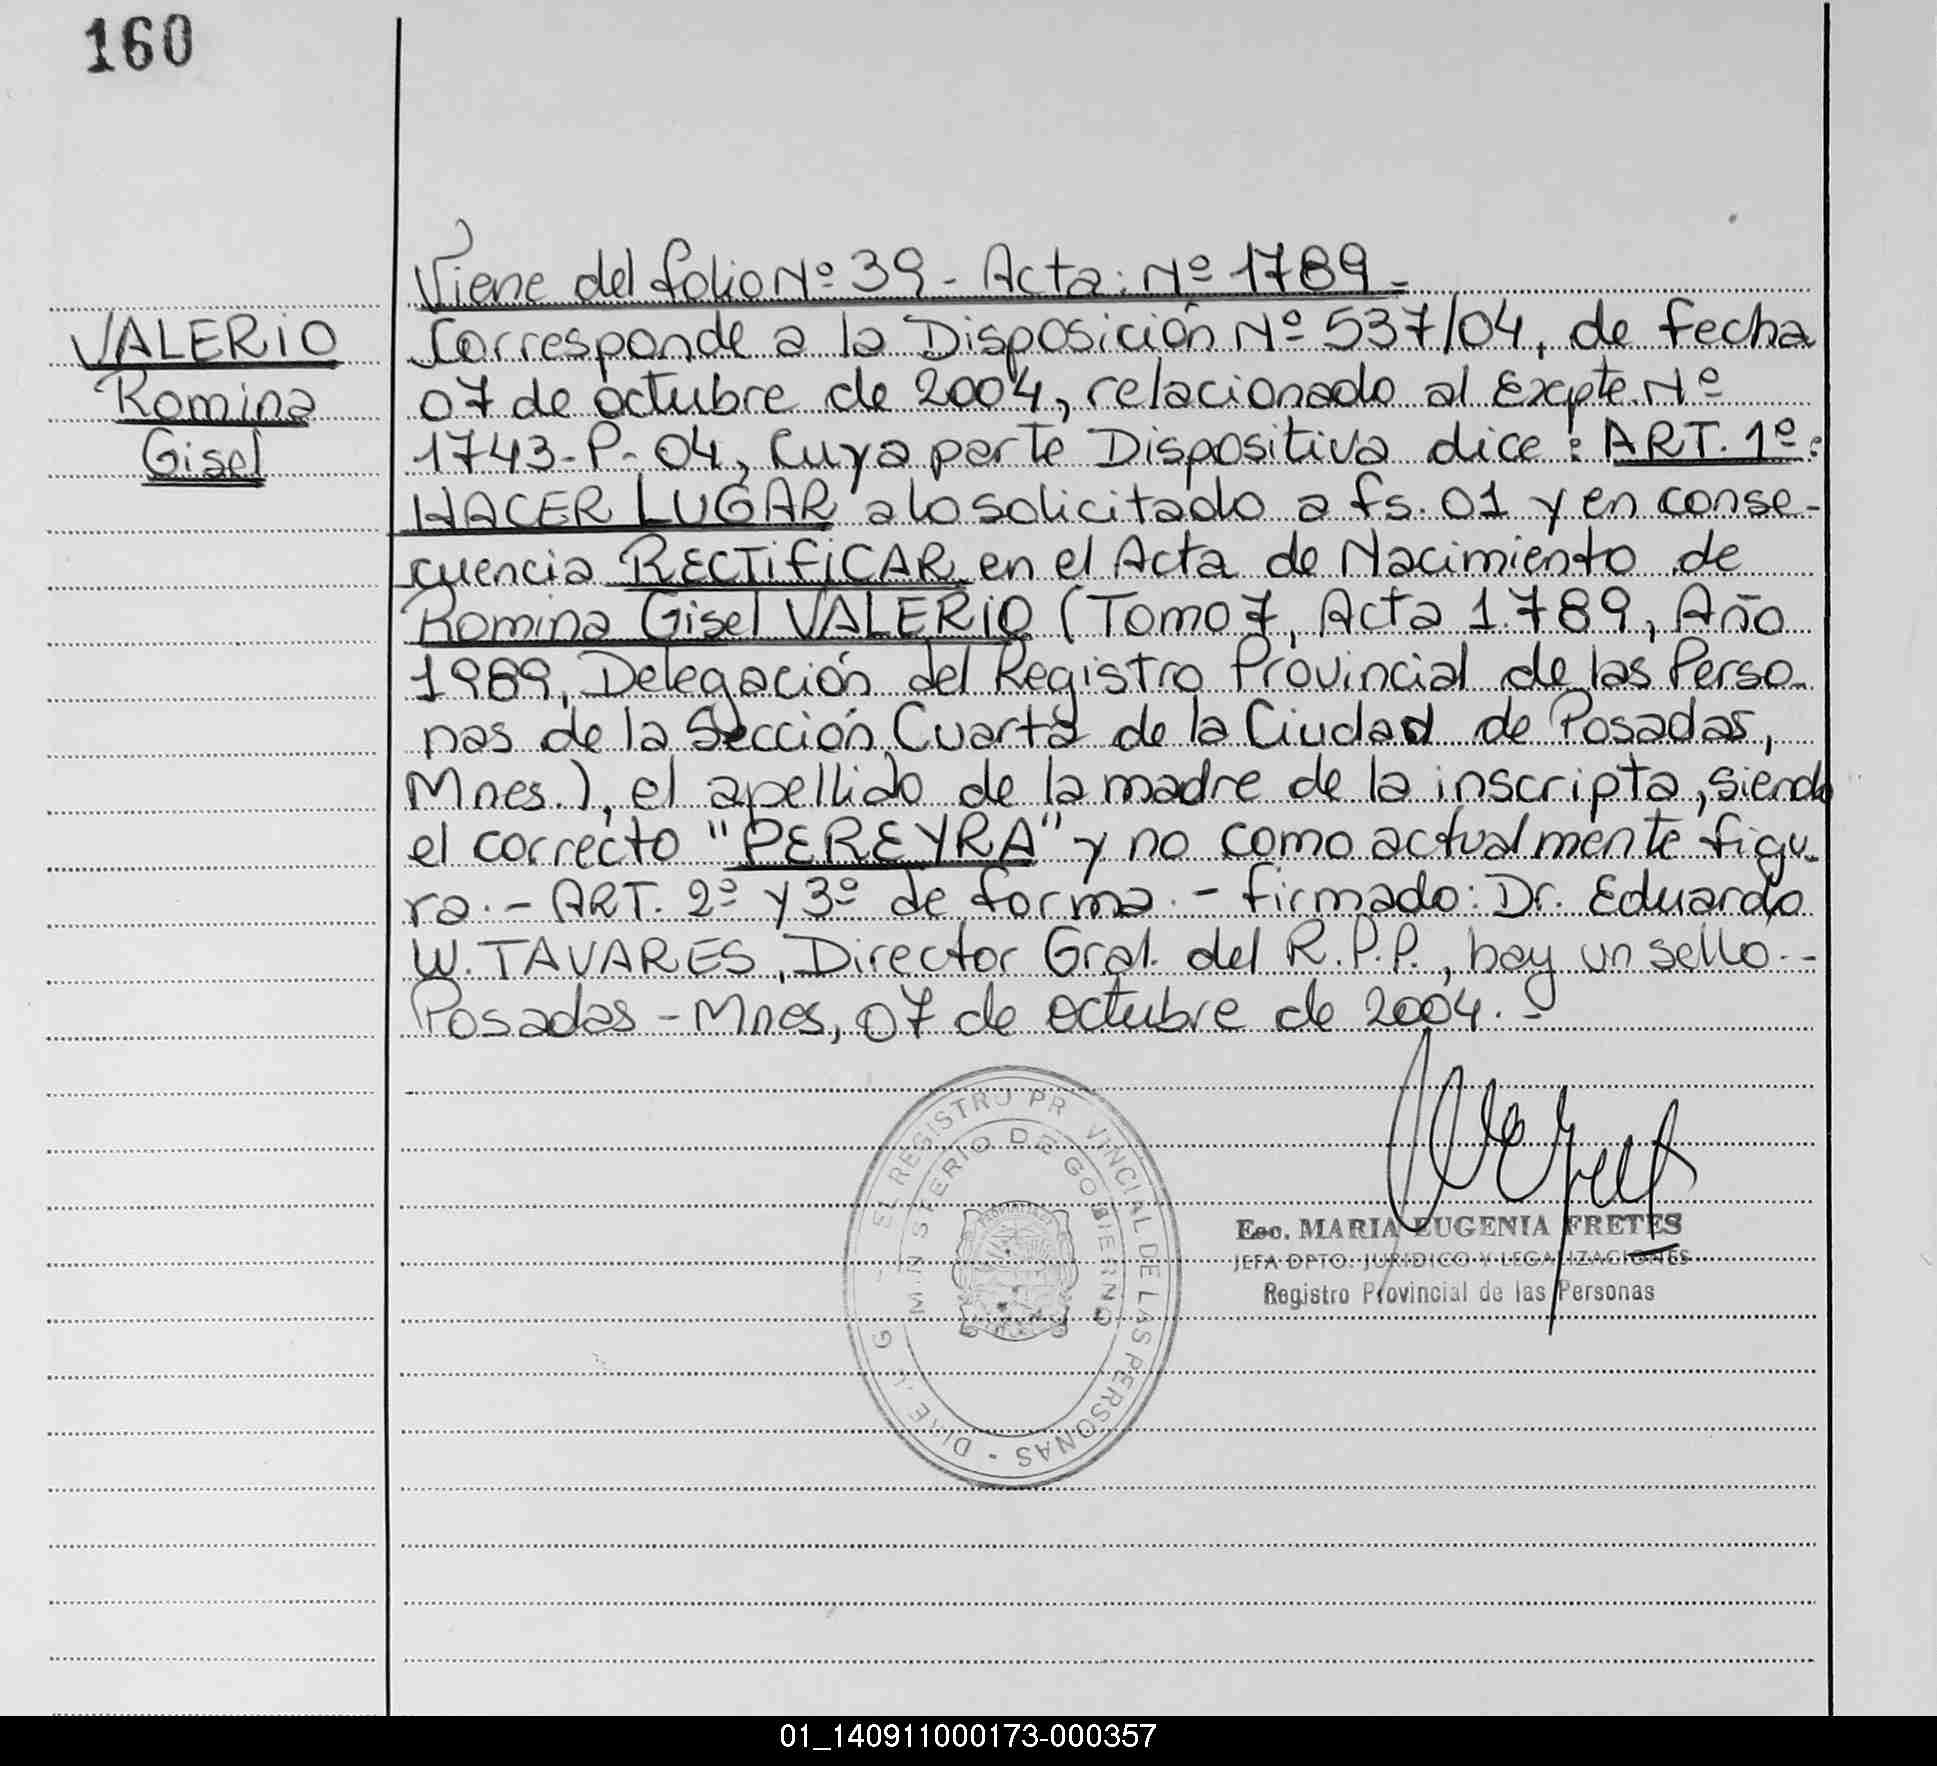 160
VALERIO
Romina
Gisel
Viene del folio Nº 39 - Acta: Nº 1789 -
Corresponde a la Disposición Nº 537/04, de fecha
07 de octubre de 2004, relacionado al Expte. Nº
1743-P-04, cuya parte Dispositiva dice: ART. 1º:
HACER LUGAR a lo solicitado a fs. 01 y en conse-
cuencia RECTIFICAR en el Acta de Nacimiento de
Romina Gisel VALERIO (Tomo 7, Acta 1.789, Año
1989, Delegación del Registro Provincial de las Perso-
nas de la Sección Cuarta de la Ciudad de Posadas,
Mnes.), el apellido de la madre de la inscripta, siendo
el correcto "PEREYRA" y no como actualmente figu-
ra. - ART. 2º y 3º de forma. - firmado: Dr. Eduardo
W. TAVARES, Director Gral. del R.P.P., hay un sello. -
Posadas - Mnes, 07 de octubre de 2004. -
EL REGISTRO PR VINCIAL DE LAS PERSONAS
MIN STERIO DE GOBIERNO
Esc. MARIA EUGENIA FRETES
JEFA DPTO. JURIDICO Y LEGALIZACIONES
Registro Provincial de las Personas
01_140911000173-000357